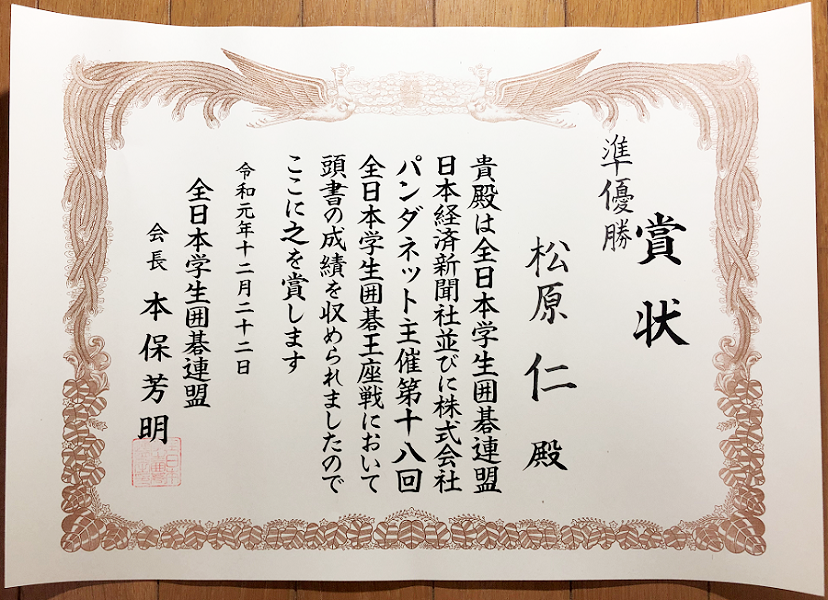 賞状
準優勝
松原仁殿
貴殿は全日本学生囲碁連盟
日本経済新聞社並びに株式会社
パンダネット主催第十八回
全日本学生囲碁王座戦において
頭書の成績を収められましたので
ここに之を賞します
令和元年十二月二十二日
全日本学生囲碁連盟
会長 本保芳明